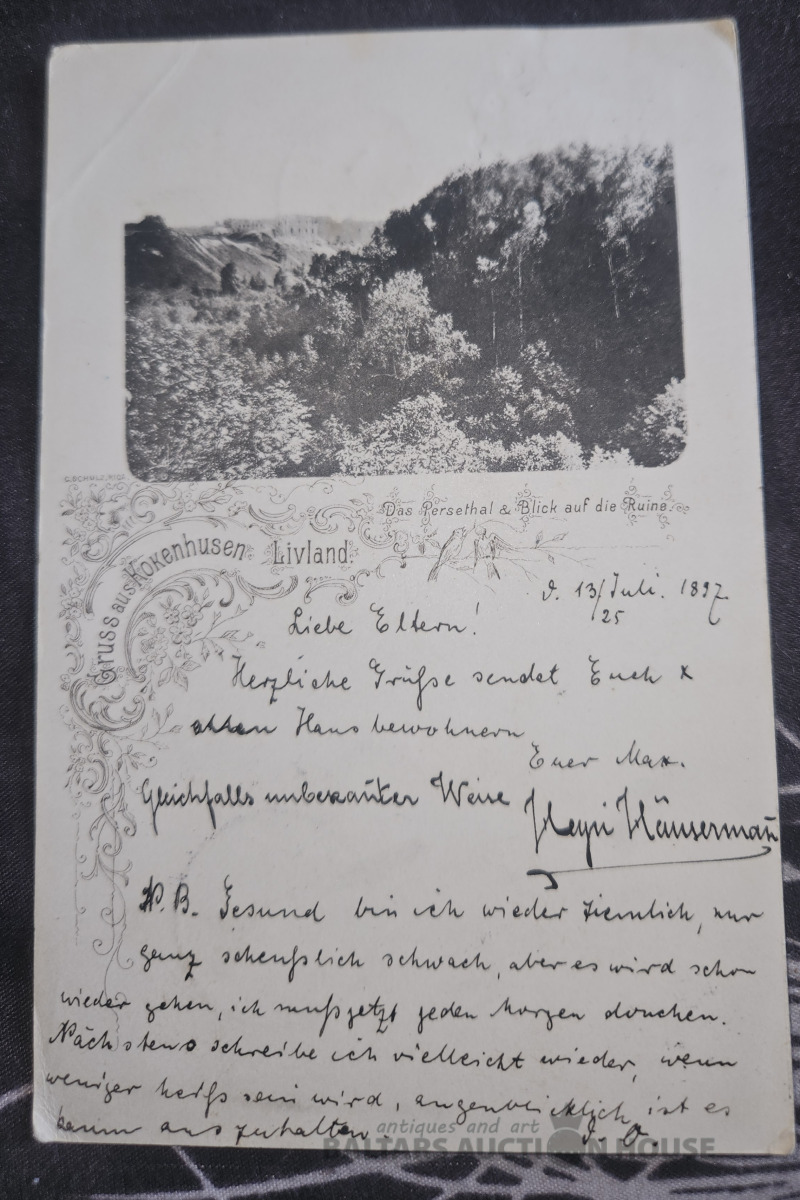 C. SCHULZ, RIGA
Das Persethal & Blick auf die Ruine.
Gruss aus Kokenhusen
Livland.
d. 13/25 Juli. 1897
Liebe Eltern!
Herzliche Grüße sendet Euch &
allen Hausbewohnern
Euer Max.
Gleichfalls unbekannter Weise
Häusermann
N.B. Gesund bin ich wieder ziemlich, nur
ganz scheußlich schwach, aber es wird schon
wieder gehen, ich muß jetzt jeden Morgen douchen.
Nächstens schreibe ich vielleicht wieder, wenn
weniger heiß sein wird, augenblicklich ist es
kaum auszuhalten.
D. O.
antiques and art
BALTARS AUCTION HOUSE